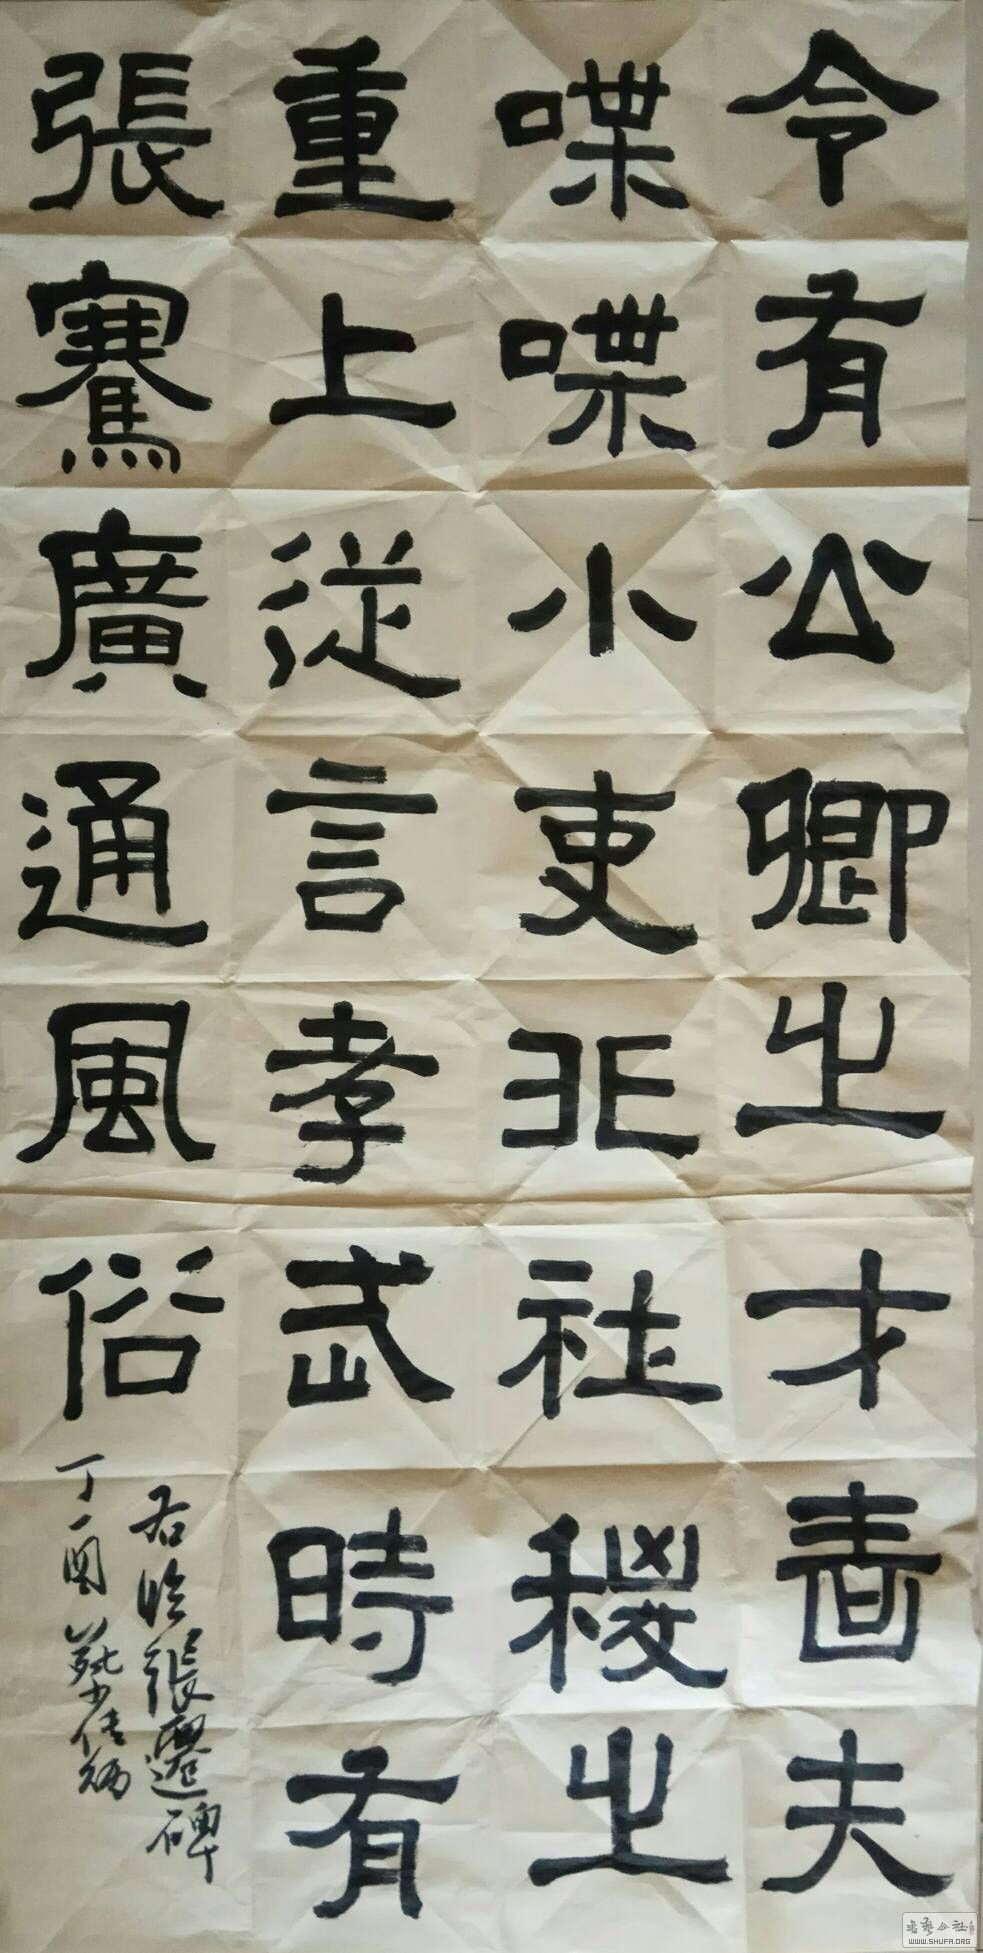 令有公卿之才啬夫
喋喋小吏非社稷之
重上從言孝武時有
張騫廣通風俗
右临張遷碑
丁酉
WWW.SHUFA.ORG